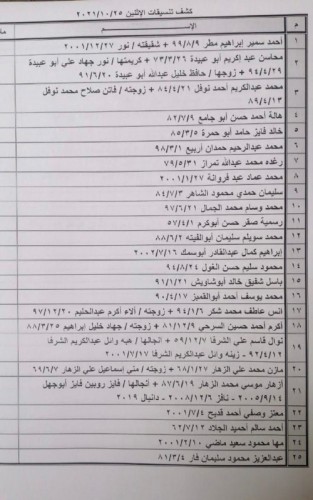 كشف تنسيقات الاثنين ٢٠٢١/١٠/٢٥
م الاســـم
١ أحمد سمير إبراهيم مطر ٩٩/٨/٩ + شقيقته / نور ٢٠٠١/١٢/٢٧
٢ محاسن عبد إكريم أبو عبيدة ٧٣/٣/٢٦ + كريمتها / نور جهاد علي أبو عبيدة
٩٤/٤/٢٩ + زوجها / حافظ خليل عبدالله أبو عبيدة ٩١/٦/٢٠
٣ محمد عبدالكريم أحمد نوفل ٨٤/٤/٢١ + زوجته / فاتن صلاح محمد نوفل
٨٩/٤/١٣
٤ هالة أحمد حسن أبو جامع ٨٢/٧/٩
٥ خالد فايز حامد أبو حمرة ٨٥/٣/٥
٦ محمد عبدالرحيم حمدان أربيع ٩٨/٣/١
٧ رغده محمد عبدالله تمراز ٧٩/٥/٣١
٨ محمد عماد عبد فروانة ٢٠٠١/١/٢٧
٩ سليمان حمدي محمود الشاهر ٨٤/٧/٣
١٠ محمد وسام محمد الجمال ٩٧/٦/١
١١ رسمية صقر حسن أبوكرم ٥٧/٤/١
١٢ محمد سويلم سليمان أبوالقيته ٨٨/٦/٢
١٣ إبراهيم كمال عبدالقادر أبوسمك ٢٠٠٢/٧/١٦
١٤ محمود سليم حسن الغول ٩٤/٨/٢٤
١٥ باسل شفيق خالد أبوشاويش ٩١/١/٢١
١٦ محمد يوسف أحمد أبوالقمبز ٩٠/٤/١٧
١٧ أنس عاطف محمد شكر ٩٤/٦/١ + زوجته / آلاء أكرم عبدالحليم ٩٧/١٢/٢٠
١٨ أكرم أحمد حسين السرحي ٨١/١٢/٩ + زوجته / جهاد خليل إبراهيم ٨٨/٣/٢٥
١٩ نوال قاسم علي الشرفا ٥٩/١٢/٧ + أنجالها / هبه وائل عبدالكريم الشرفا
٩٢/٤/١٢ - زينه وائل عبدالكريم الشرفا ٢٠٠١/٧/١٧
٢٠ مازن محمد علي الزهار ٦٨/١/٢٧ + زوجته / مني إسماعيل علي الزهار ٦٩/٦/٧
٢١ أزهار موسي محمد الزهار ٨٧/٦/١٩ + أنجالها / فايز روبين فايز أبوجهل
٢٠٠٥/٩/١٤ - نافز ٢٠٠٨/١٢/٦ - دانيال ٢٠١٩
٢٢ معتز وصفي أحمد قديح ٢٠٠١/٧/٤
٢٣ أحمد سالم أحميد الجلاد ٦٢/٧/١٢
٢٤ مها محمود سعيد ماضي ٢٠٠١/٢/١٠
٢٥ عبدالعزيز محمود سليمان فار ٨١/٣/٤